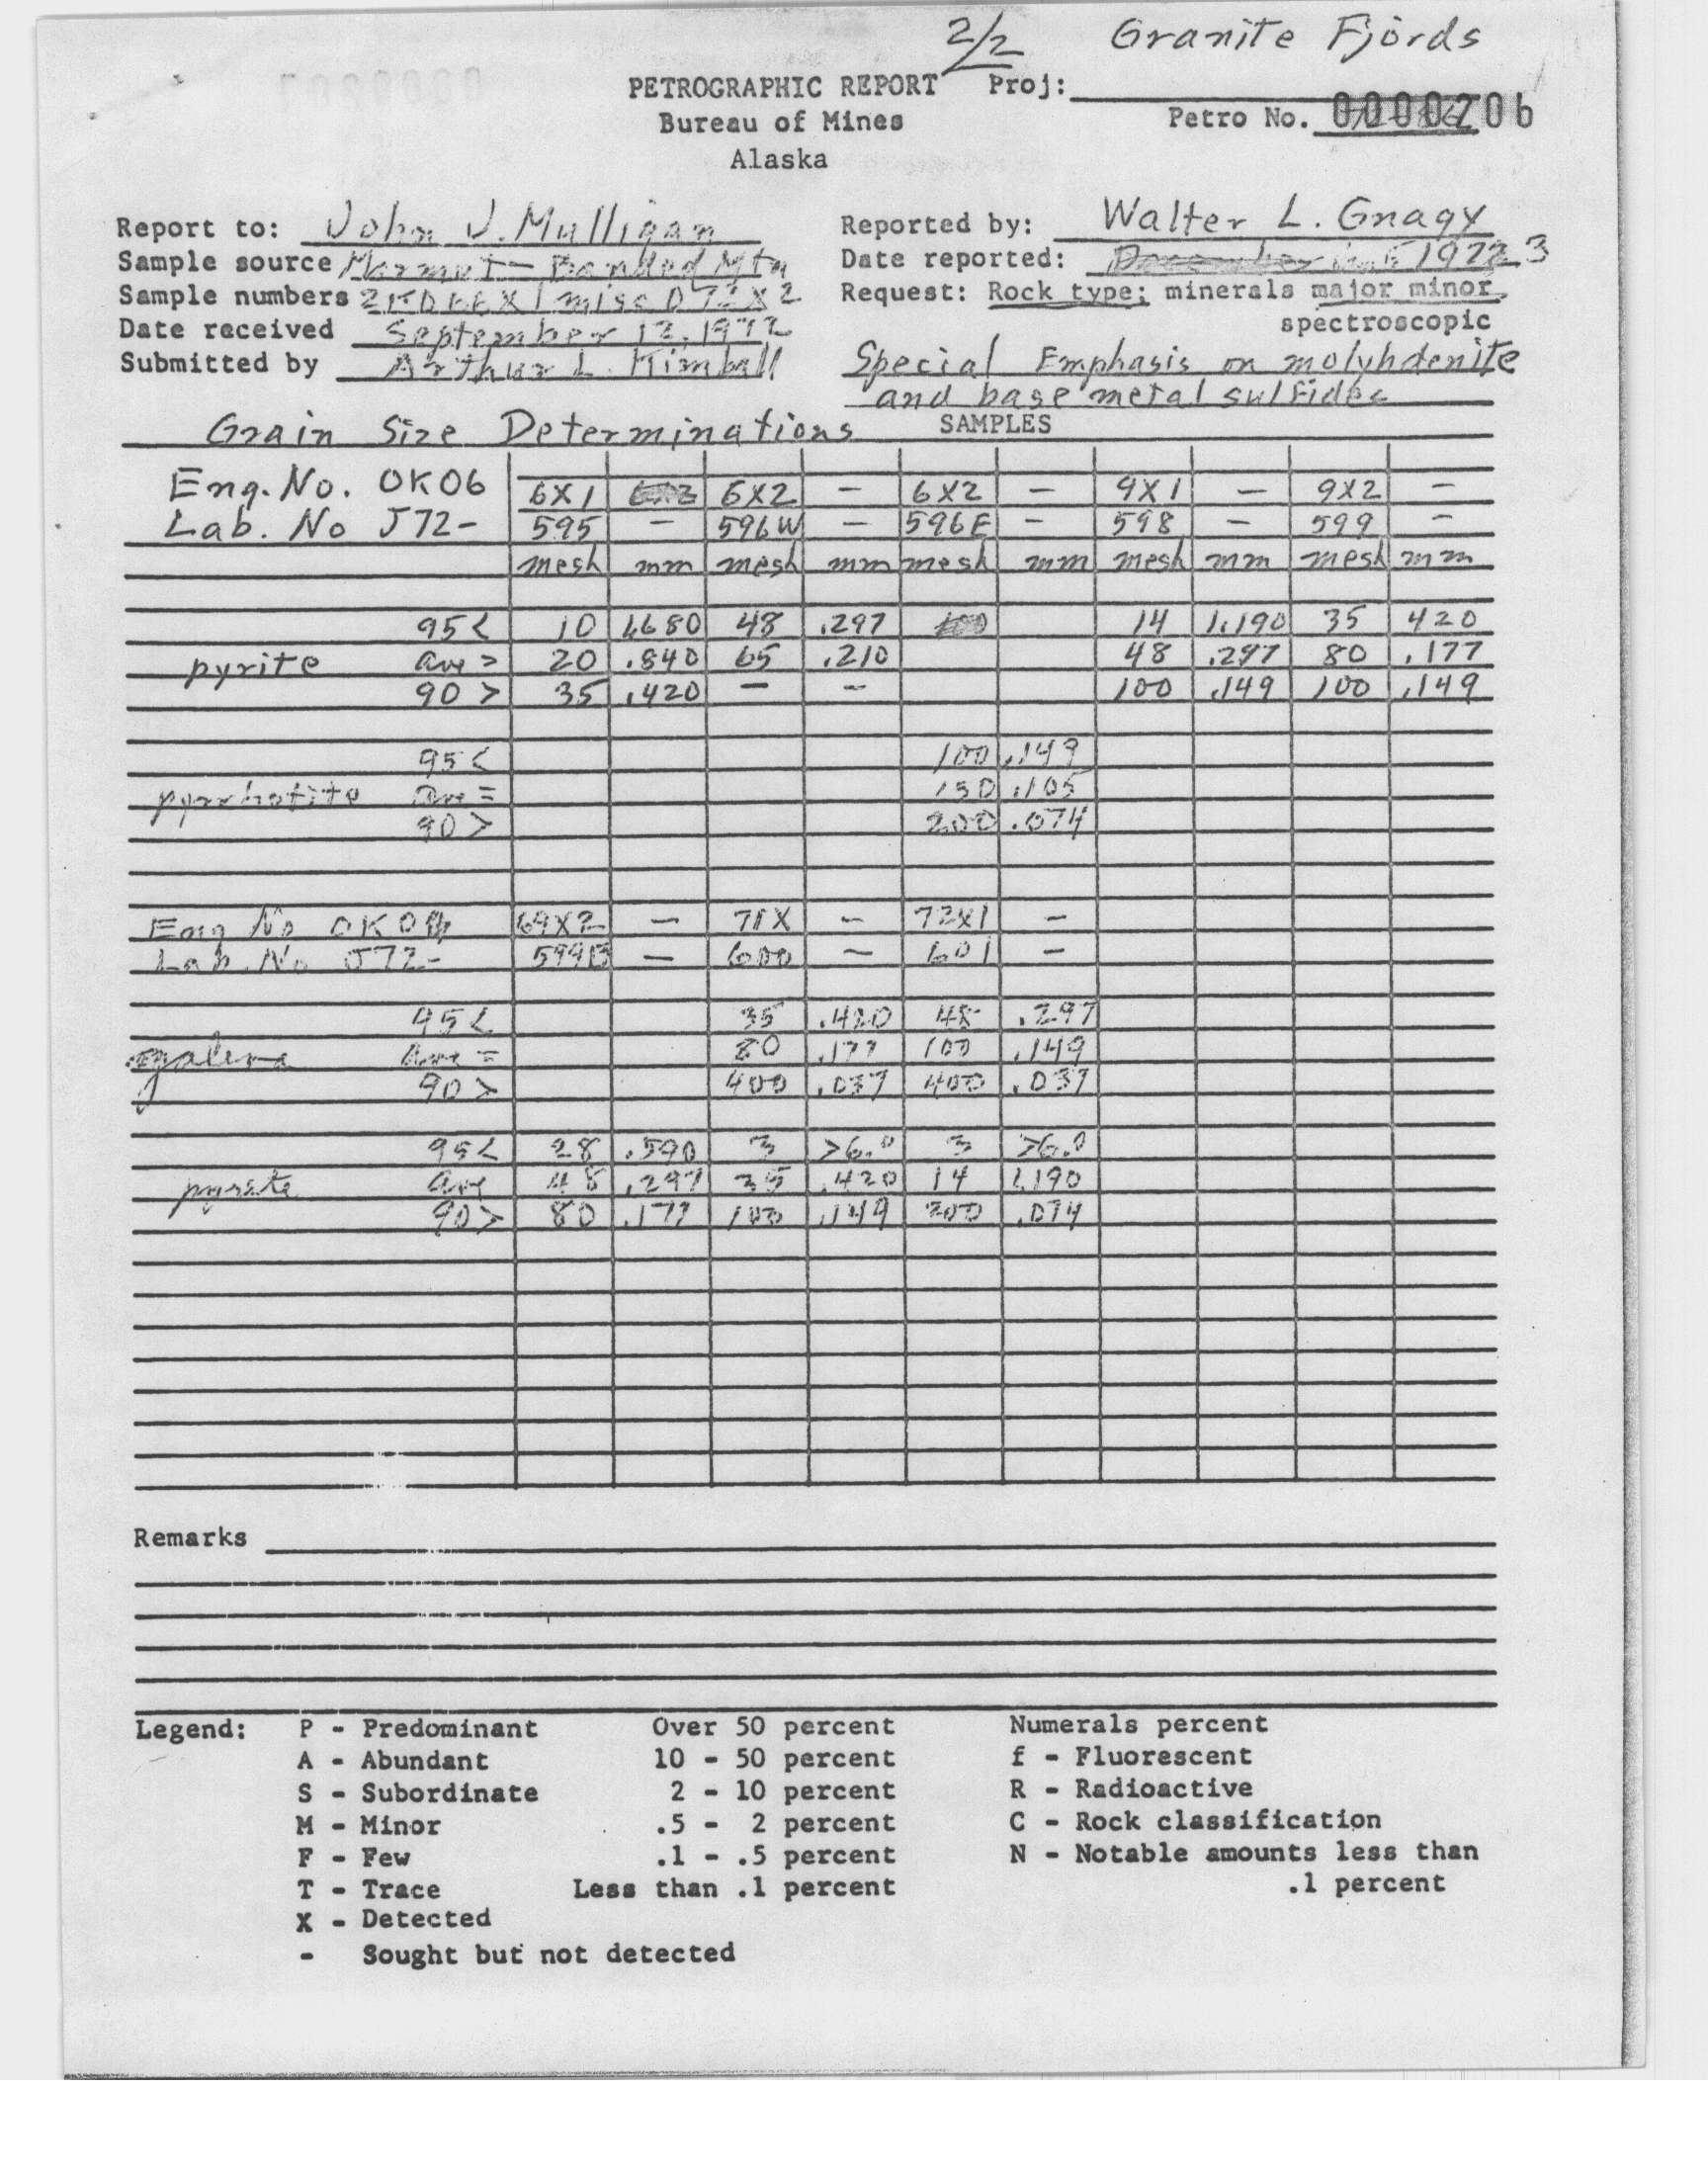 2/2 Granite Fjords
PETROGRAPHIC REPORT Proj:
Bureau of Mines Petro No. 0000206
Alaska
Report to: John J. Mulligan Reported by: Walter L. Gnagy
Sample source Marmot - Banded Mtn Date reported: 1973
Sample numbers Request: Rock type; minerals major minor,
Date received September 12, 1972 spectroscopic
Submitted by Arthur L. Kimball Special Emphasis on molybdenite
and base metal sulfides
Grain Size Determinations SAMPLES
Eng. No. OK06 6X1 6X2 - 6X2 - 9X1 - 9X2 -
Lab. No J72- 595 - 596W - 596E - 598 - 599 -
mesh mm mesh mm mesh mm mesh mm mesh mm
95< 10 1.680 48 .297 14 1.190 35 420
pyrite ave > 20 .840 65 .210 48 .297 80 .177
90 > 35 .420 - - 100 .149 100 .149
95< 100 .149
pyrrhotite ave = 150 .105
90 > 200 .074
Eng No OK06 69X2 - 71X - 72X1 -
Lab. No J72- 599B - 600 - 601 -
95< 35 .420 48 .297
galena ave = 80 .177 100 .149
90> 400 .037 400 .037
95< 28 .590 3 >6.0 3 >6.0
pyrite ave 48 .297 35 .420 14 1.190
90> 80 .177 100 .149 200 .074
Remarks
Legend: P - Predominant Over 50 percent Numerals percent
A - Abundant 10 - 50 percent f - Fluorescent
S - Subordinate 2 - 10 percent R - Radioactive
M - Minor .5 - 2 percent C - Rock classification
F - Few .1 - .5 percent N - Notable amounts less than
T - Trace Less than .1 percent .1 percent
X - Detected
- Sought but not detected